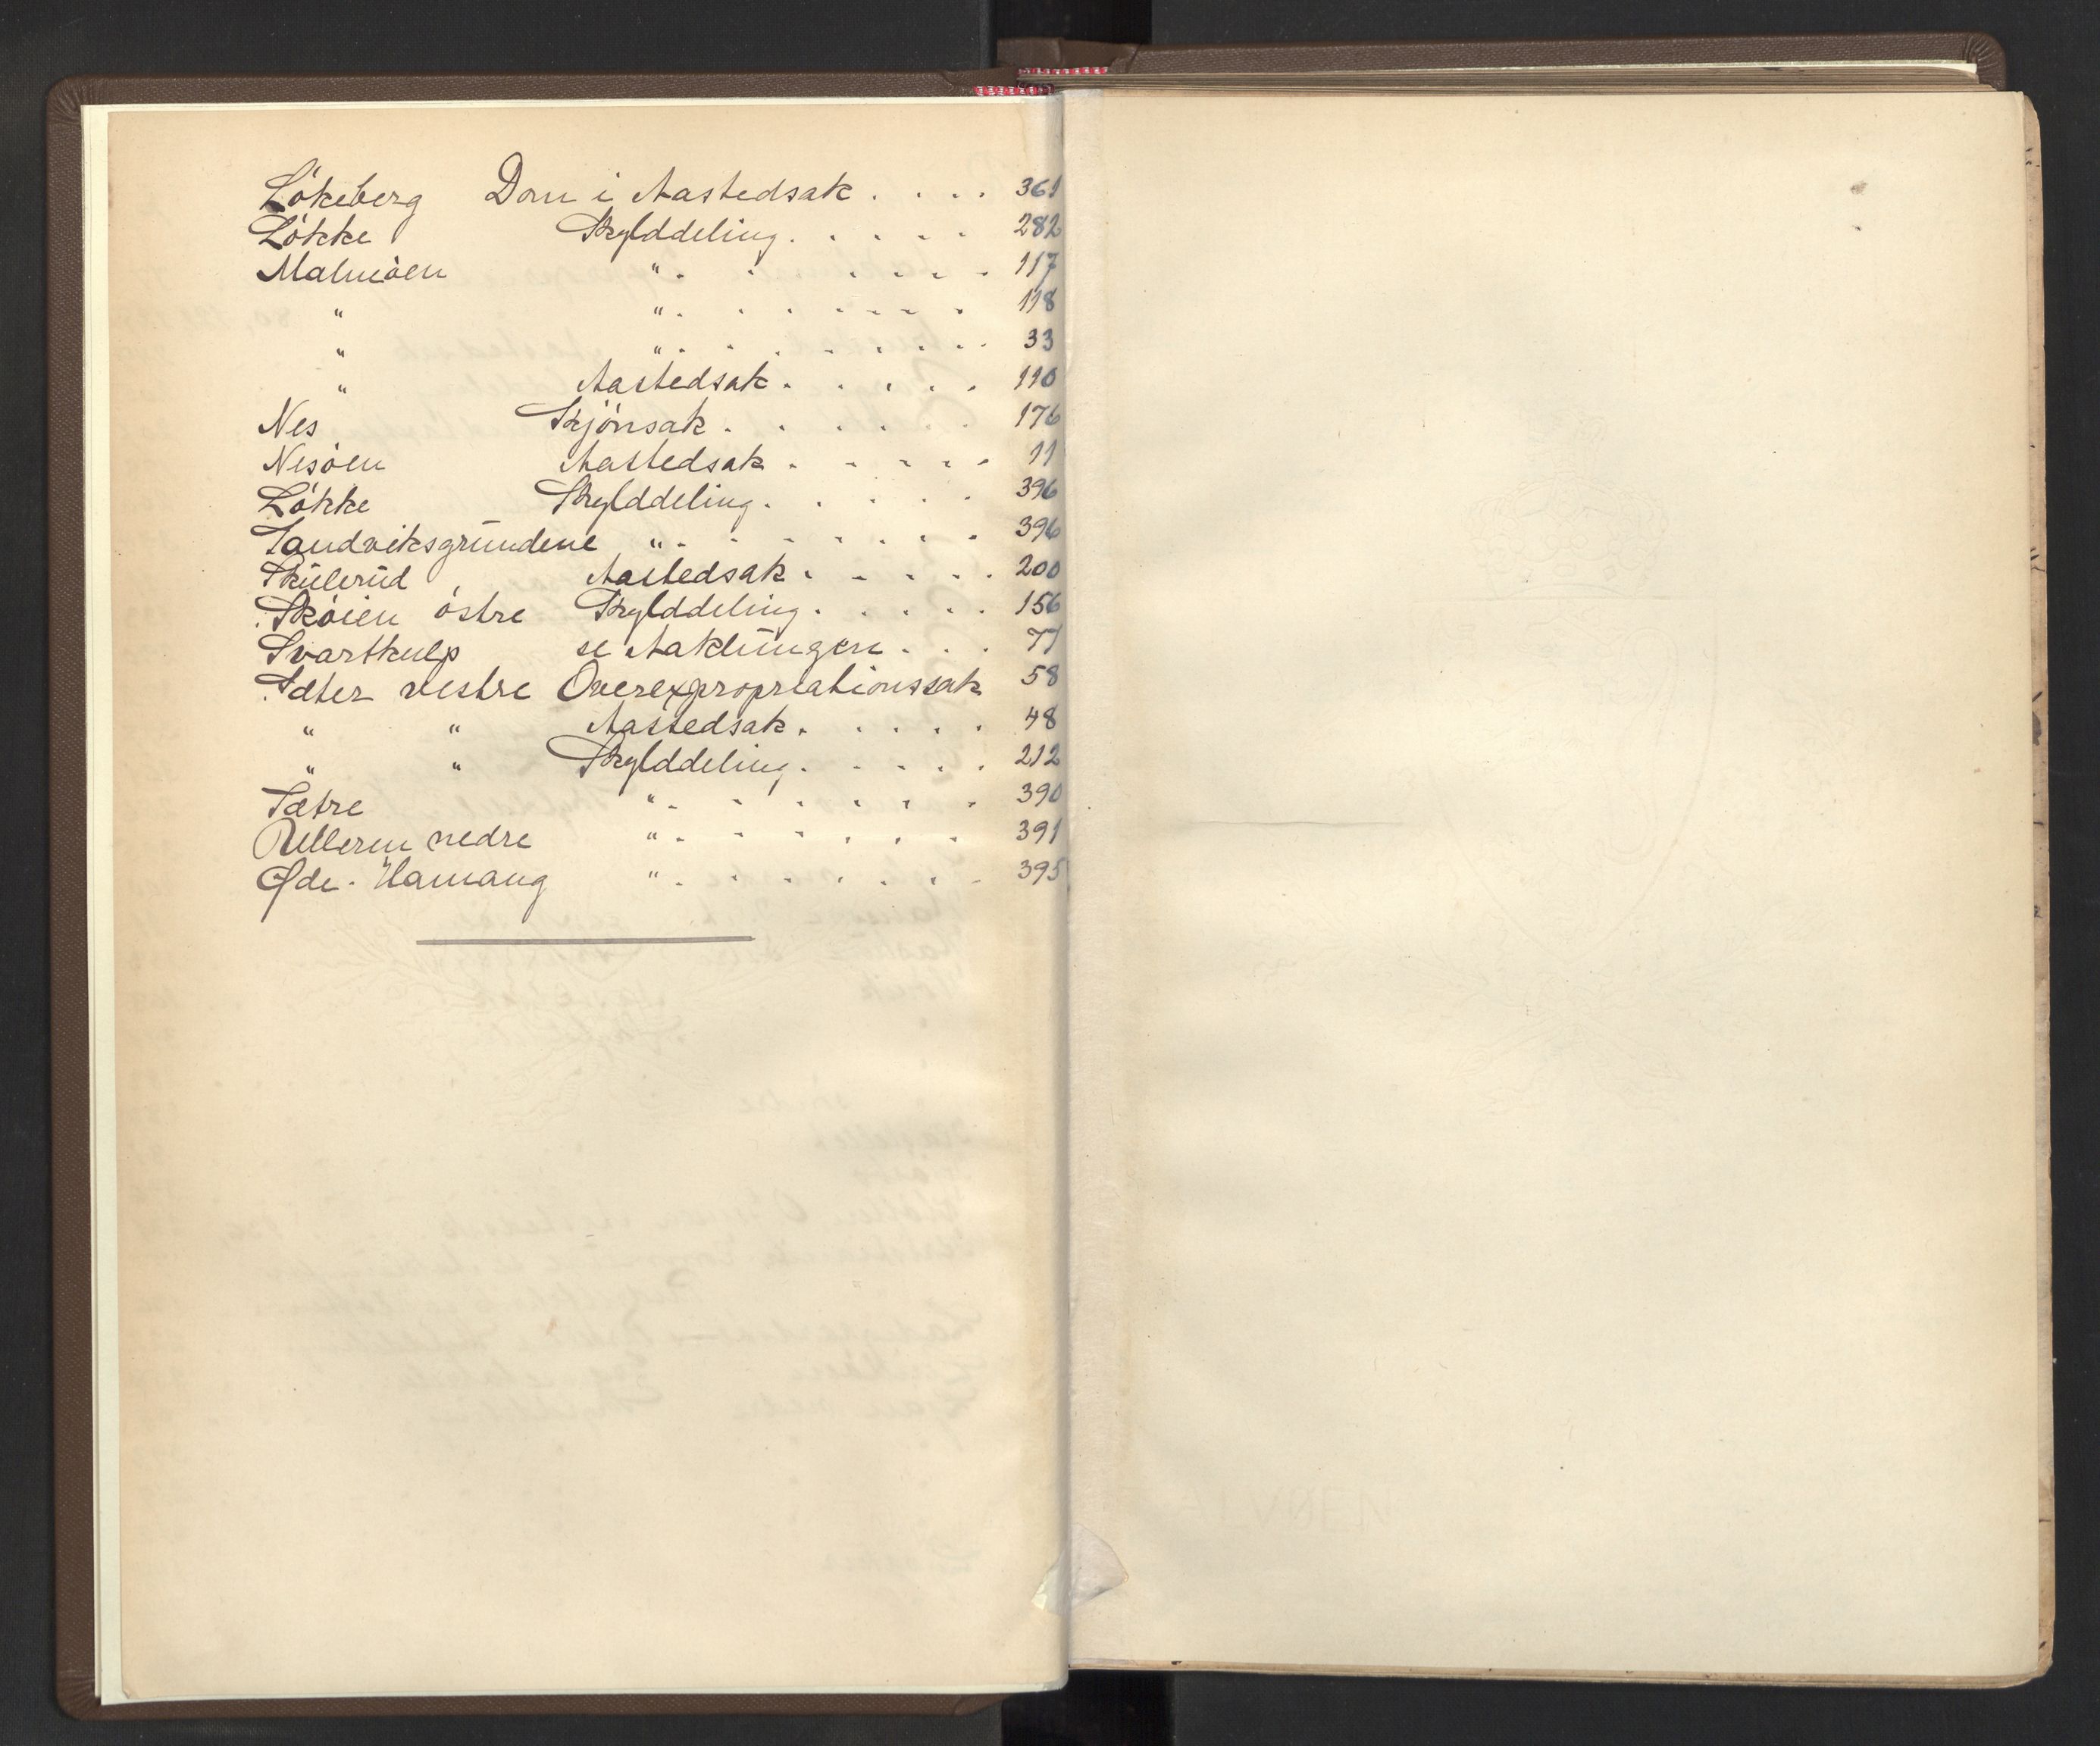 Lökeberg Dom i Aastedsak . . . . 361
Lökke Skylddeling. . . . . . 282
Malmöen " . . . . . . 117
" " . . . . . . . 118
" " . . . . . . . . 33
" Aastedsak . . . . . . 110
Nes Skjönsak . . . . . . 176
Nesöen Aastedsak . . . . . . 11
Lökke Skylddeling. . . . . . 396
Sandviksgrundene " . . . . . . . 396
Skulerud Aastedsak . . . . . 200
Sköien östre Skylddeling. . . . . 156
Svartkulp se Aaklungen . . . 77
Sæter vestre Overexpropriationssak 58
" " Aastedsak . . . . . 48
" " Skylddeling. . . . . 212
Sætre " . . . . . . . 390
Ulleren nedre " . . . . . . 391
Øde-Hamang " . . . . . . . 395